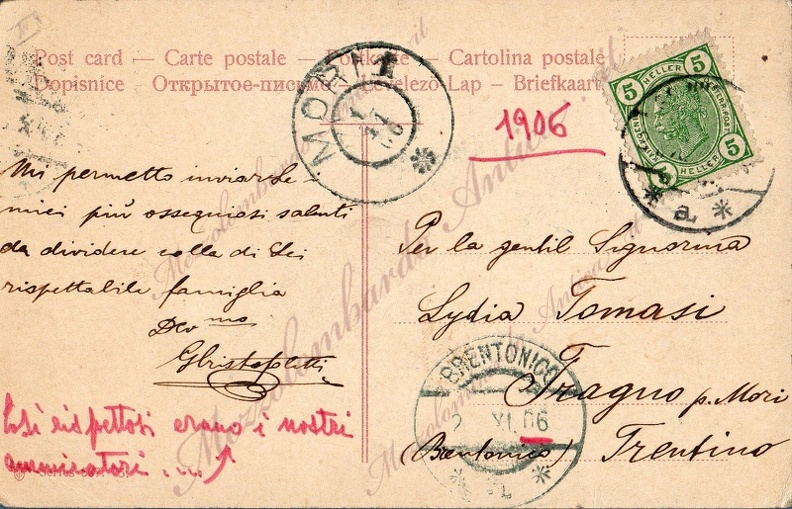 Post card — Carte postale — Postkarte — Cartolina postale
Dopisnice — Открытое письмо — Levelező-Lap — Briefkaart
MORI 1
1 XI 06
1906
5 HELLER 5
5 HELLER 5
a
Mi permetto inviarLe i
miei più ossequiosi saluti
da dividere colla di Lei
rispettabile famiglia
Devmo
GCristofoletti
Per la gentil Signorina
Lydia Tomasi
Fragno p. Mori
(Brentonico) Trentino
BRENTONICO
2 XI 06
Così rispettosi erano i nostri
ammiratori ...
Mezzolombardo Antica.it